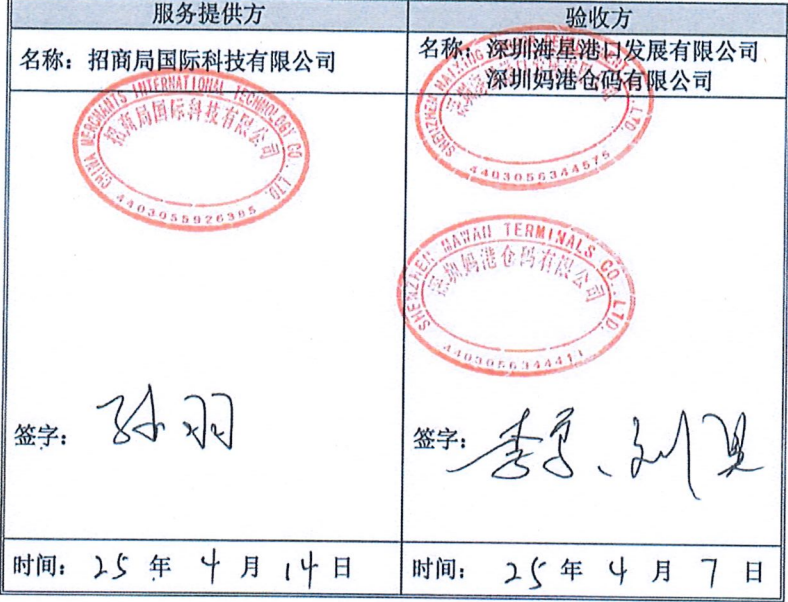 服务提供方
验收方
名称：招商局国际科技有限公司
名称：深圳海星港口发展有限公司
深圳妈港仓码有限公司
CHINA MERCHANTS INTERNATIONAL TECHNOLOGY CO., LTD.
招商局国际科技有限公司
4403055926385
SHENZHEN HAIXING
LTD.
4403056344575
SHENZHEN MAWAN TERMINALS CO., LTD.
深圳妈港仓码有限公司
4403056344411
签字：孙羽
签字：李
、刘
时间：25年4月14日
时间：25年4月7日